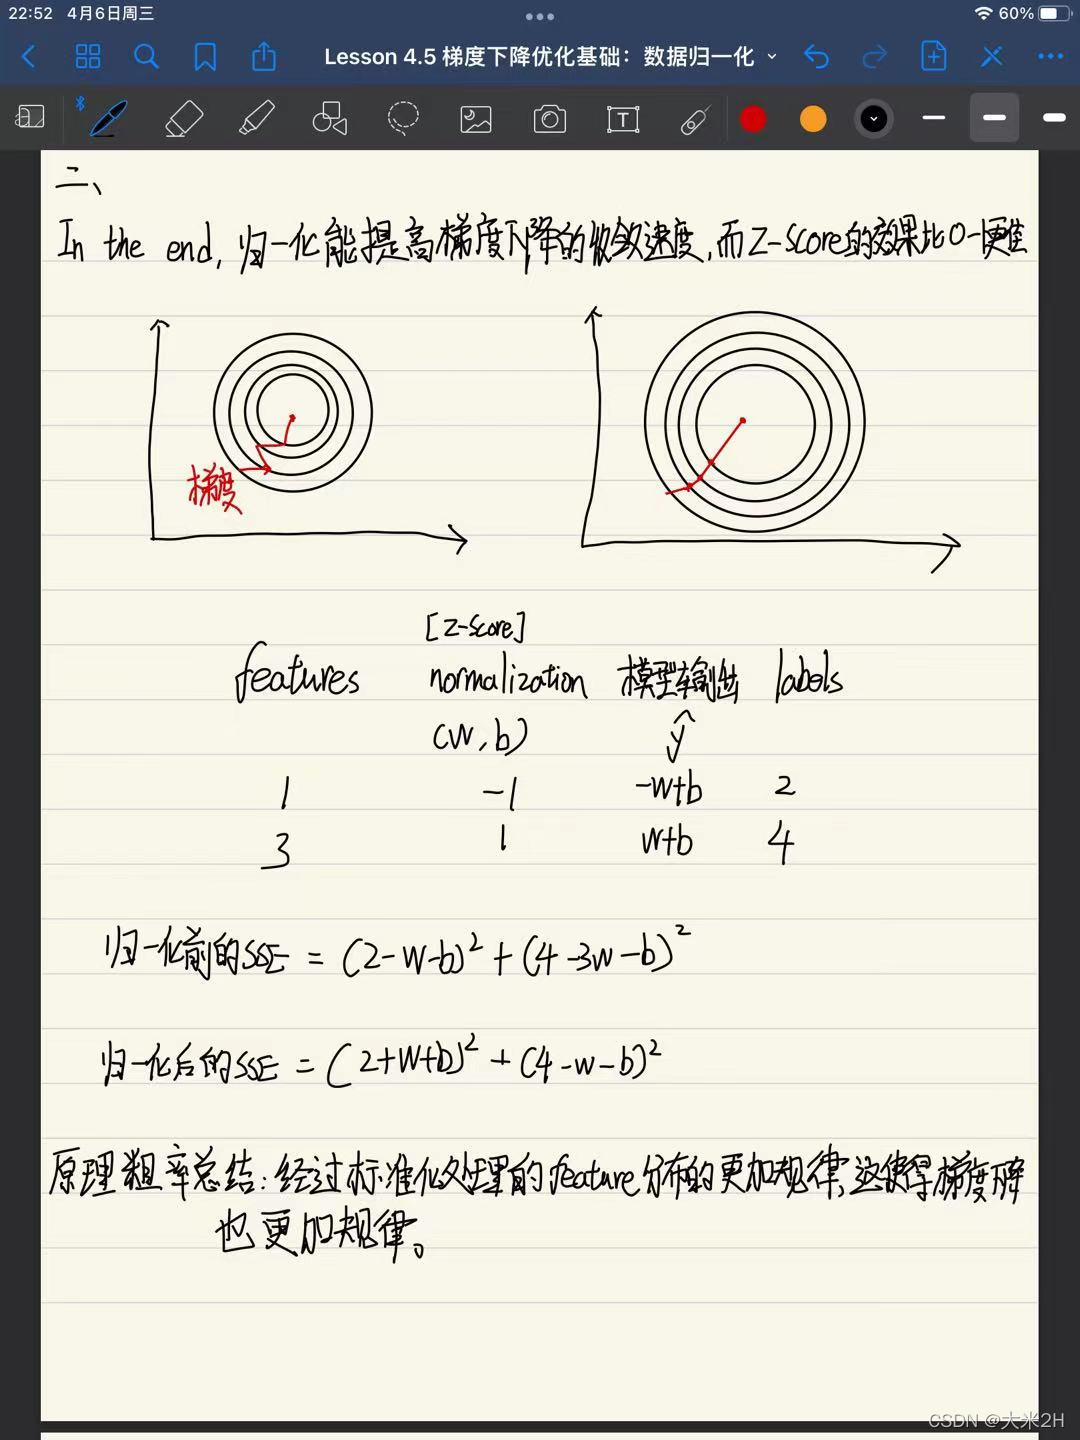 22:52 4月6日周三
60%
Lesson 4.5 梯度下降优化基础：数据归一化
T
二、
In the end, 归一化能提高梯度下降的收敛速度,而Z-Score的效果比0-1更佳
梯度
[Z-Score]
features normalization 模型输出 labels
(w,b) ŷ
1 -1 -w+b 2
3 1 w+b 4
归一化前的SSE = (2-w-b)² + (4-3w-b)²
归一化后的SSE = (2+w+b)² + (4-w-b)²
原理粗率总结:经过标准化处理的feature分布的更加规律,这使得梯度下降
也更加规律。
CSDN @大米2H